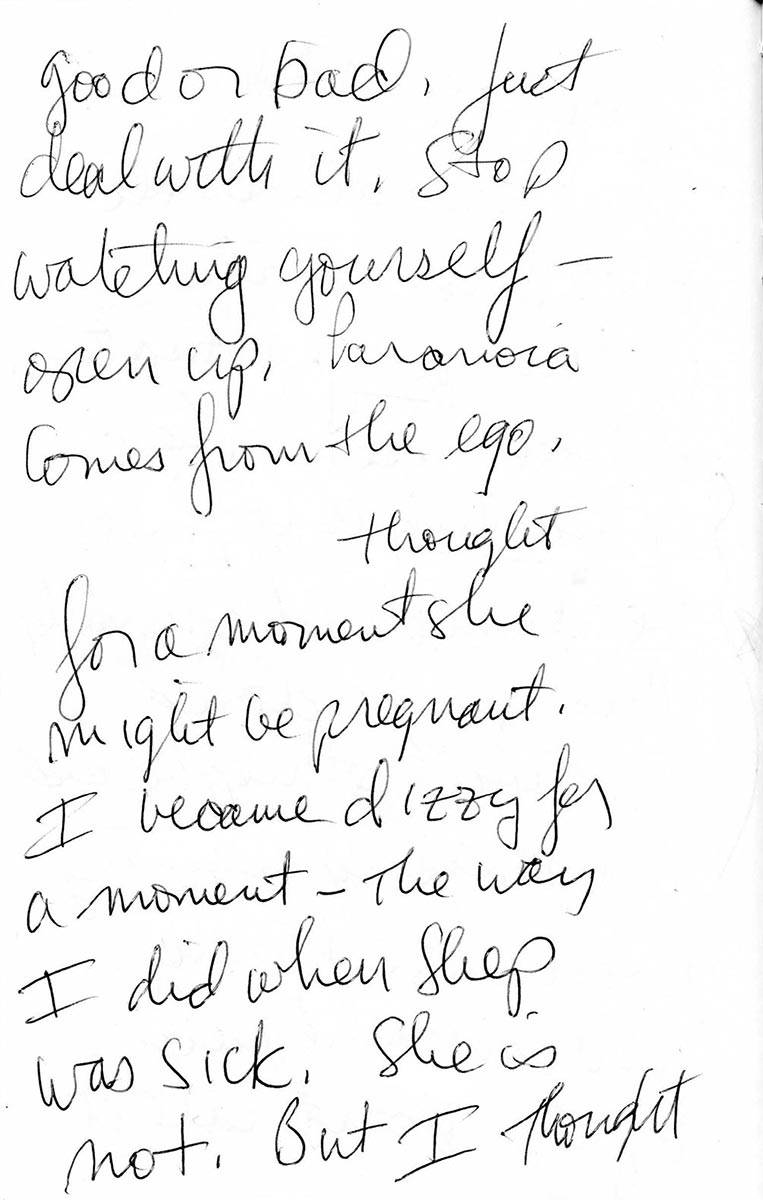 good or bad. Just
deal with it. Stop
watching yourself –
open up. Paranoia
comes from the ego.
thought
for a moment she
might be pregnant.
I became dizzy for
a moment – the way
I did when Shep
was sick. She is
not. But I thought